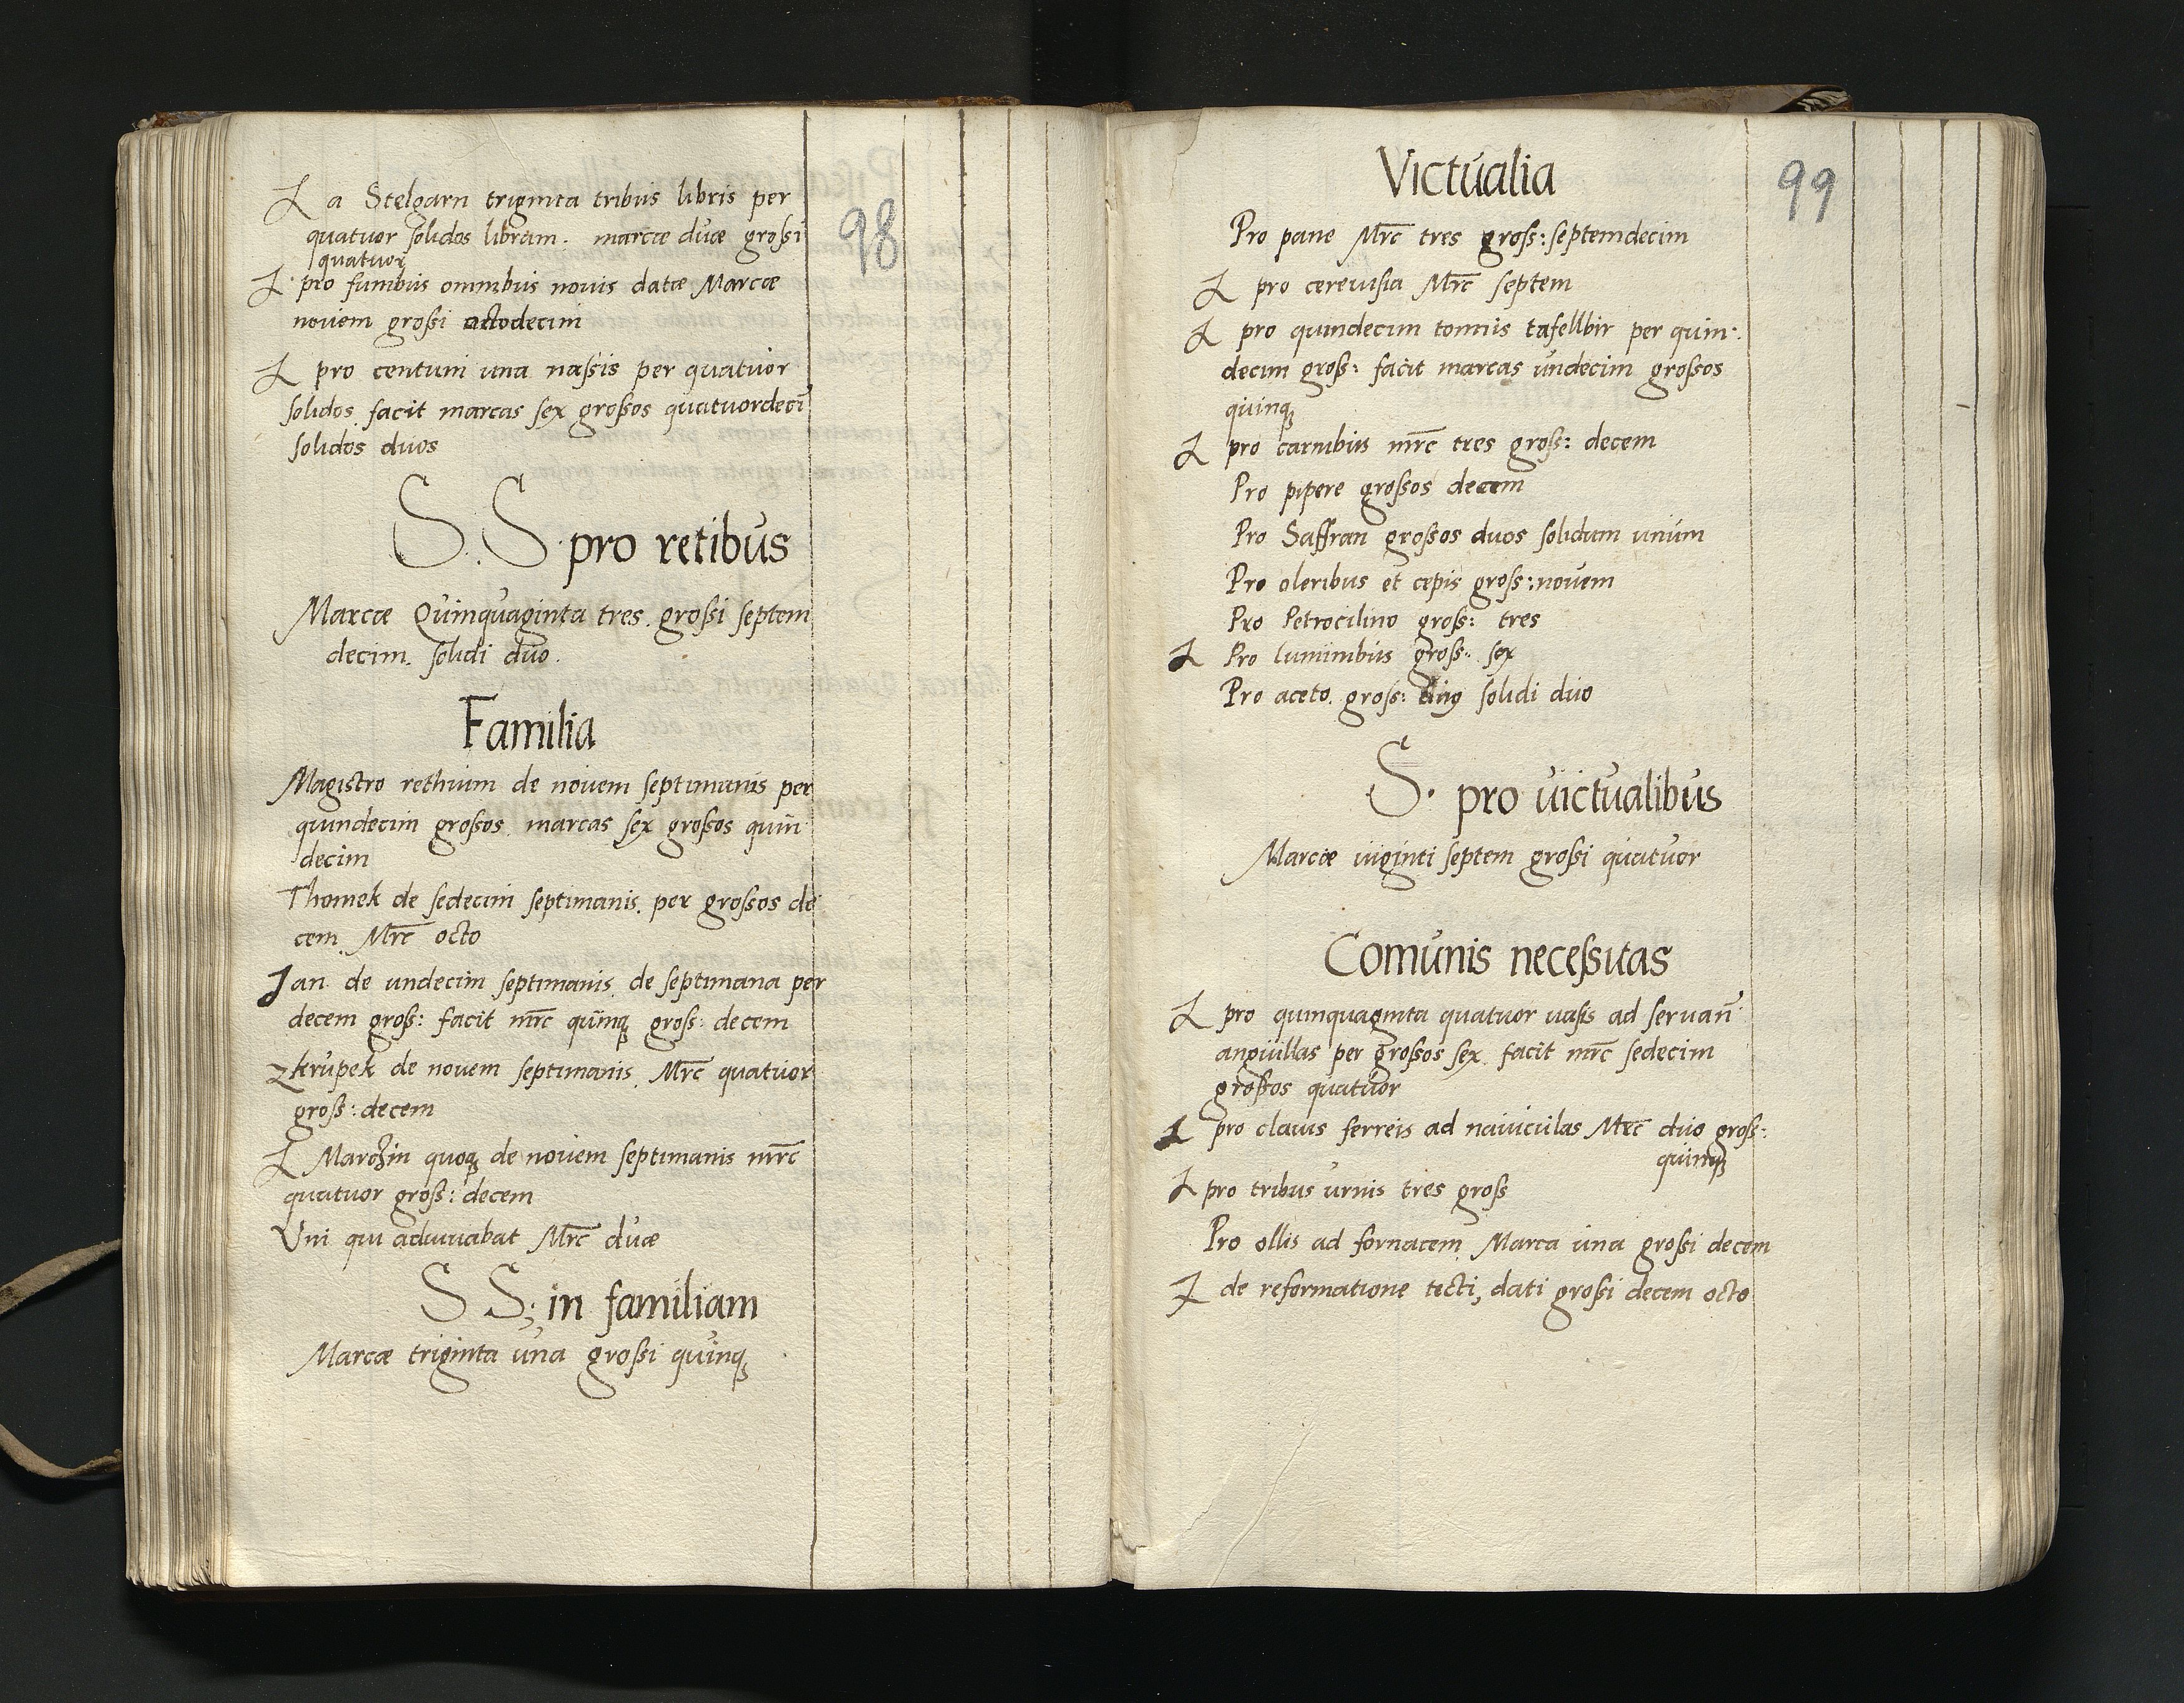 98
I a Stelgarn triginta tribus libris per
quatuor solidos libram. marcæ duæ grossi
quatuor
I pro funibus omnibus novis datæ Marcæ
novem grossi octodecim
I pro centum una nassis per quatuor
solidos facit marcas sex grossos quatuordeci
solidos duos
S. S pro retibus
Marcæ Quinquaginta tres. grossi septem
decim. solidi duo.
Familia
Magistro rethium de novem septimanis per
quindecim grossos. marcas sex grossos quin
decim
Thomek de sedecim septimanis. per grossos de
cem Mrc octo
Jan de undecim septimanis. de septimana per
decem gross: facit mrc quinq gross: decem
zkrupek de novem septimanis. Mrc quatuor
gross: decem
I Marczin quoq de novem septimanis mrc
quatuor gross: decem
Uni qui adiuvabat Mrc duæ
S S: in familiam
Marcæ triginta una grossi quinq
99
Victualia
Pro pane Mrc tres gross: septemdecim
I pro cerevisia Mrc septem
I pro quindecim tonnis tafellbir per quin
decim gross: facit marcas undecim grossos
quinq
I pro carnibus mrc tres gross: decem
Pro pipere grossos decem
Pro Saffran grossos duos solidum unum
Pro oleribus et cepis gross: novem
Pro Petrocilino gross: tres
I Pro luminibus gross: sex
Pro aceto. gross: solidi duo
S. pro victualibus
Marcæ viginti septem grossi quatuor
Comunis necessitas
I pro quinquaginta quatuor vasis ad servan
angwillas per grossos sex. facit mrc sedecim
grossos quatuor
I pro clavis ferreis ad naviculas Mrc duo gross:
quinq
I pro tribus urnis tres gross
Pro ollis ad fornacem Marca una grossi decem
I de reformatione tecti, dati grossi decem octo